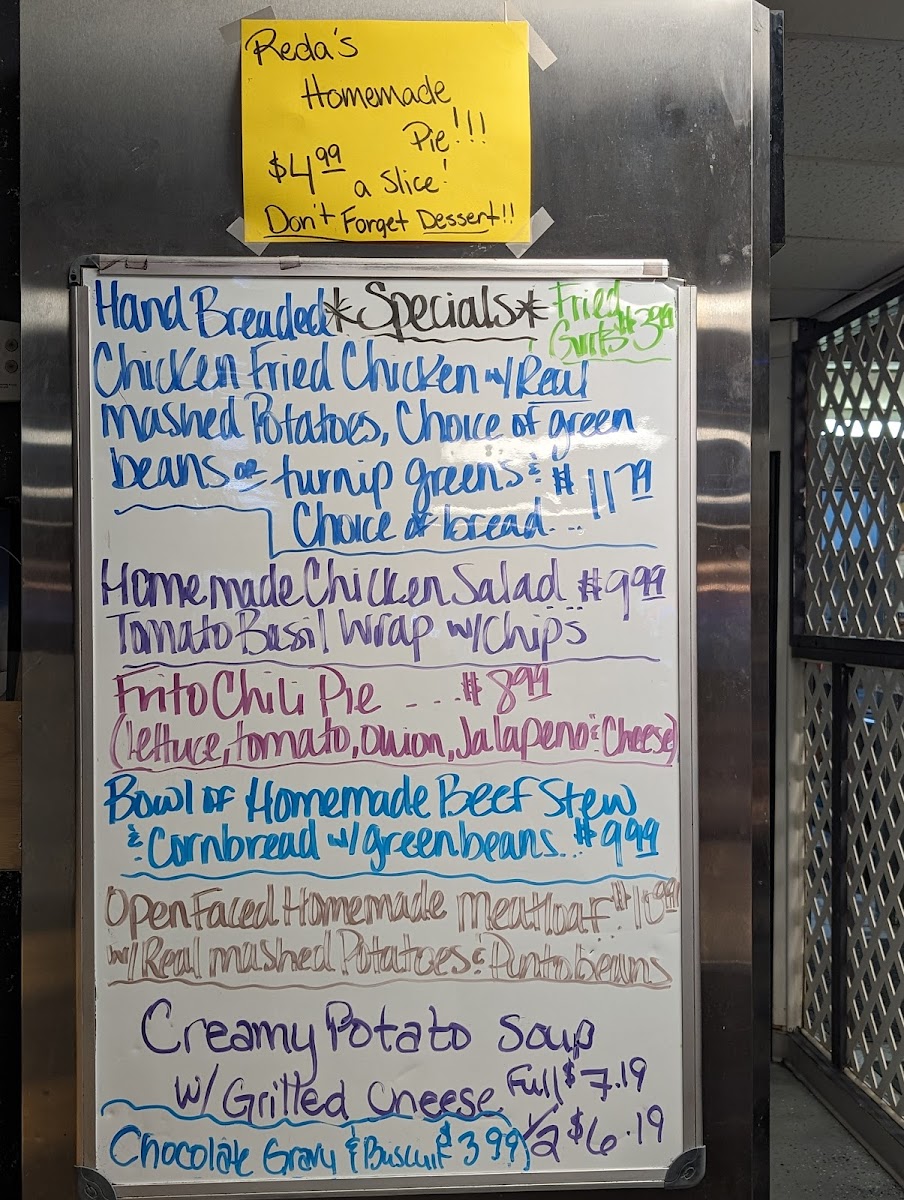 Reda's
Homemade
Pie!!!
$4.99
a slice!
Don't Forget Dessert!!
Hand Breaded *Specials*
Fried
$3.99
Chicken Fried Chicken w/Real
mashed Potatoes, Choice of green
beans or turnip greens & $11.79
Choice of bread...
Homemade Chicken Salad $9.99
Tomato Basil Wrap w/chips
Frito Chili Pie ....$8.99
(lettuce, tomato, onion, Jalapeno & Cheese)
Bowl of Homemade Beef Stew
& Cornbread w/greenbeans...$9.99
Open Faced Homemade meatloaf
w/Real mashed Potatoes & Pintobeans
Creamy Potato Soup
w/Grilled Cheese Full $7.19
1/2 $6.19
Chocolate Gravy & Buscuit $3.99